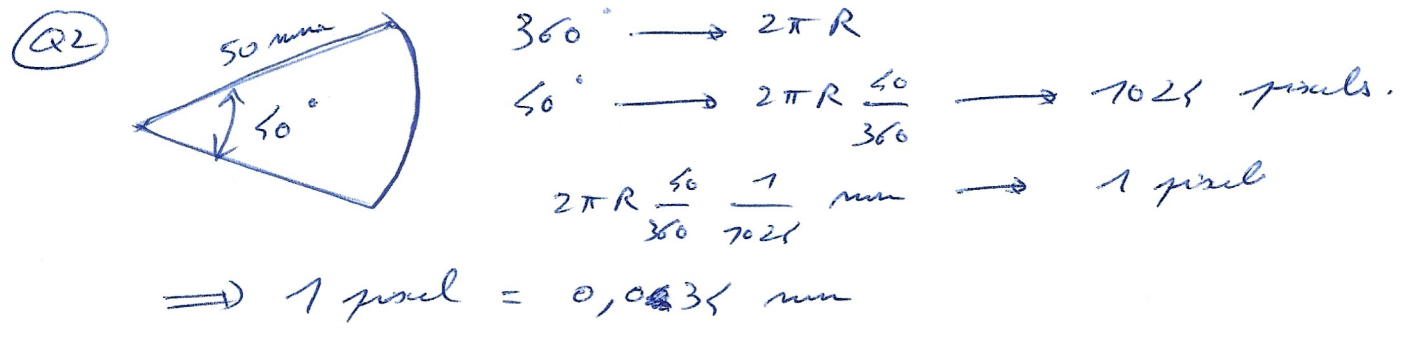 Q2
50 mm
40°
360° → 2πR
40° → 2πR 40/360 → 1024 pixels.
2πR 40/360 1/1024 mm → 1 pixel
⇒ 1 pixel = 0,034 mm